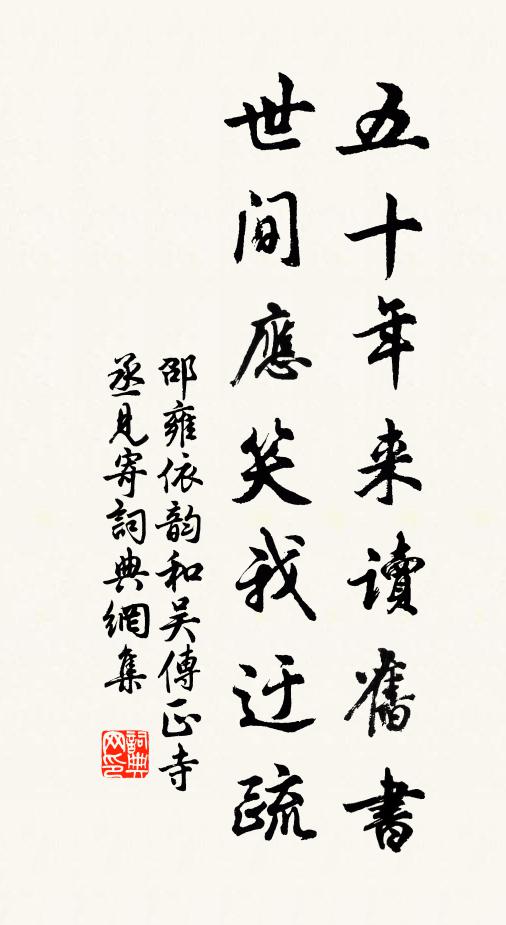 五十年来讀舊書
世间應笑我迂疏
邵雍依韵和吴傳正寺
丞見寄詞典網集
詞典
网印